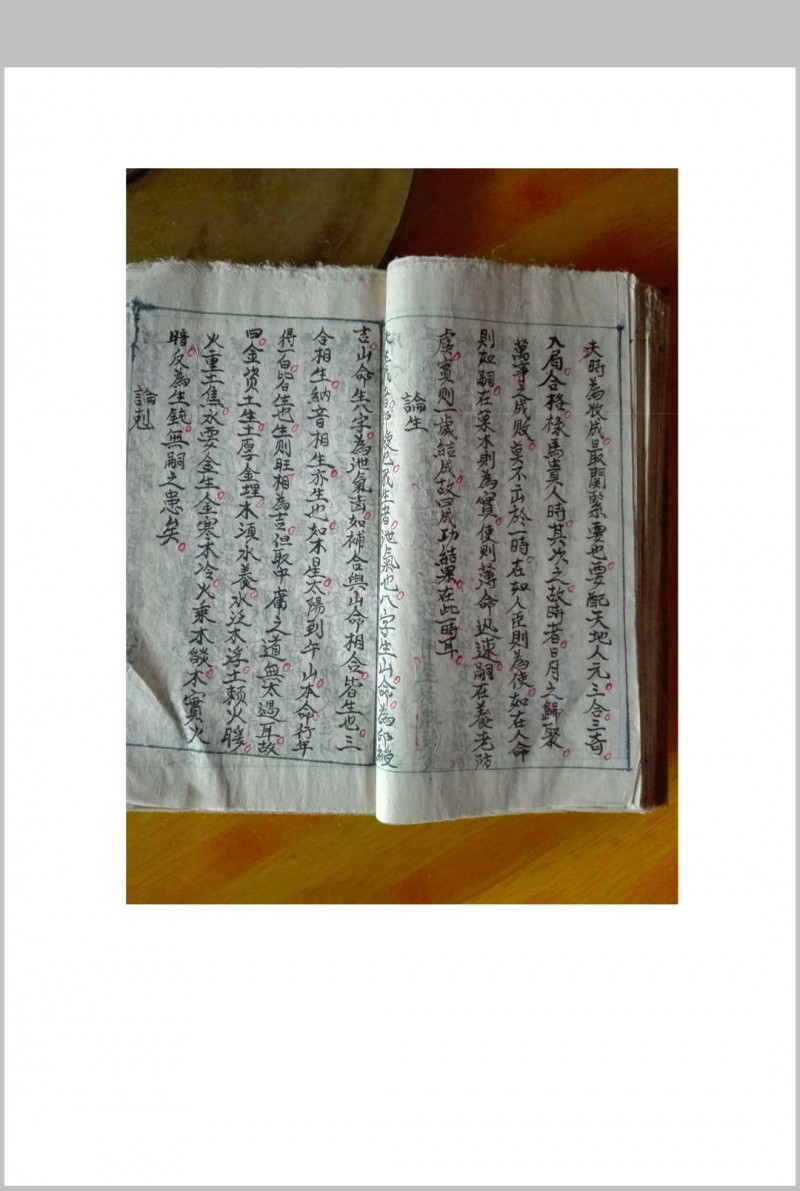 夫時為收成最關緊要也要配天地人元三合三奇
入局合格祿馬貴人時其次之故時者日月之歸聚
萬事之成敗莫不出於一時在如人臣則為使如在人命
則如嗣在菓木則為實使則薄命迟速嗣在養老防
虛實則一歲結成故曰成功結果在此時耳
論生
我生者泄氣也八字生山命為印綬
吉山命生八字為泄氣凶如補合與山命相合皆生也三
合相生納音相生亦生也如木星太陽到午山本命行年
得一白皆生也生則旺相為吉但取中庸之道無太過耳故
曰金資土生土厚金埋木須水養水泛木浮土賴火暖
火重土焦水要金生金寒水冷火乘木燄木實火
暗反為生鈍無嗣之患矣
論剋